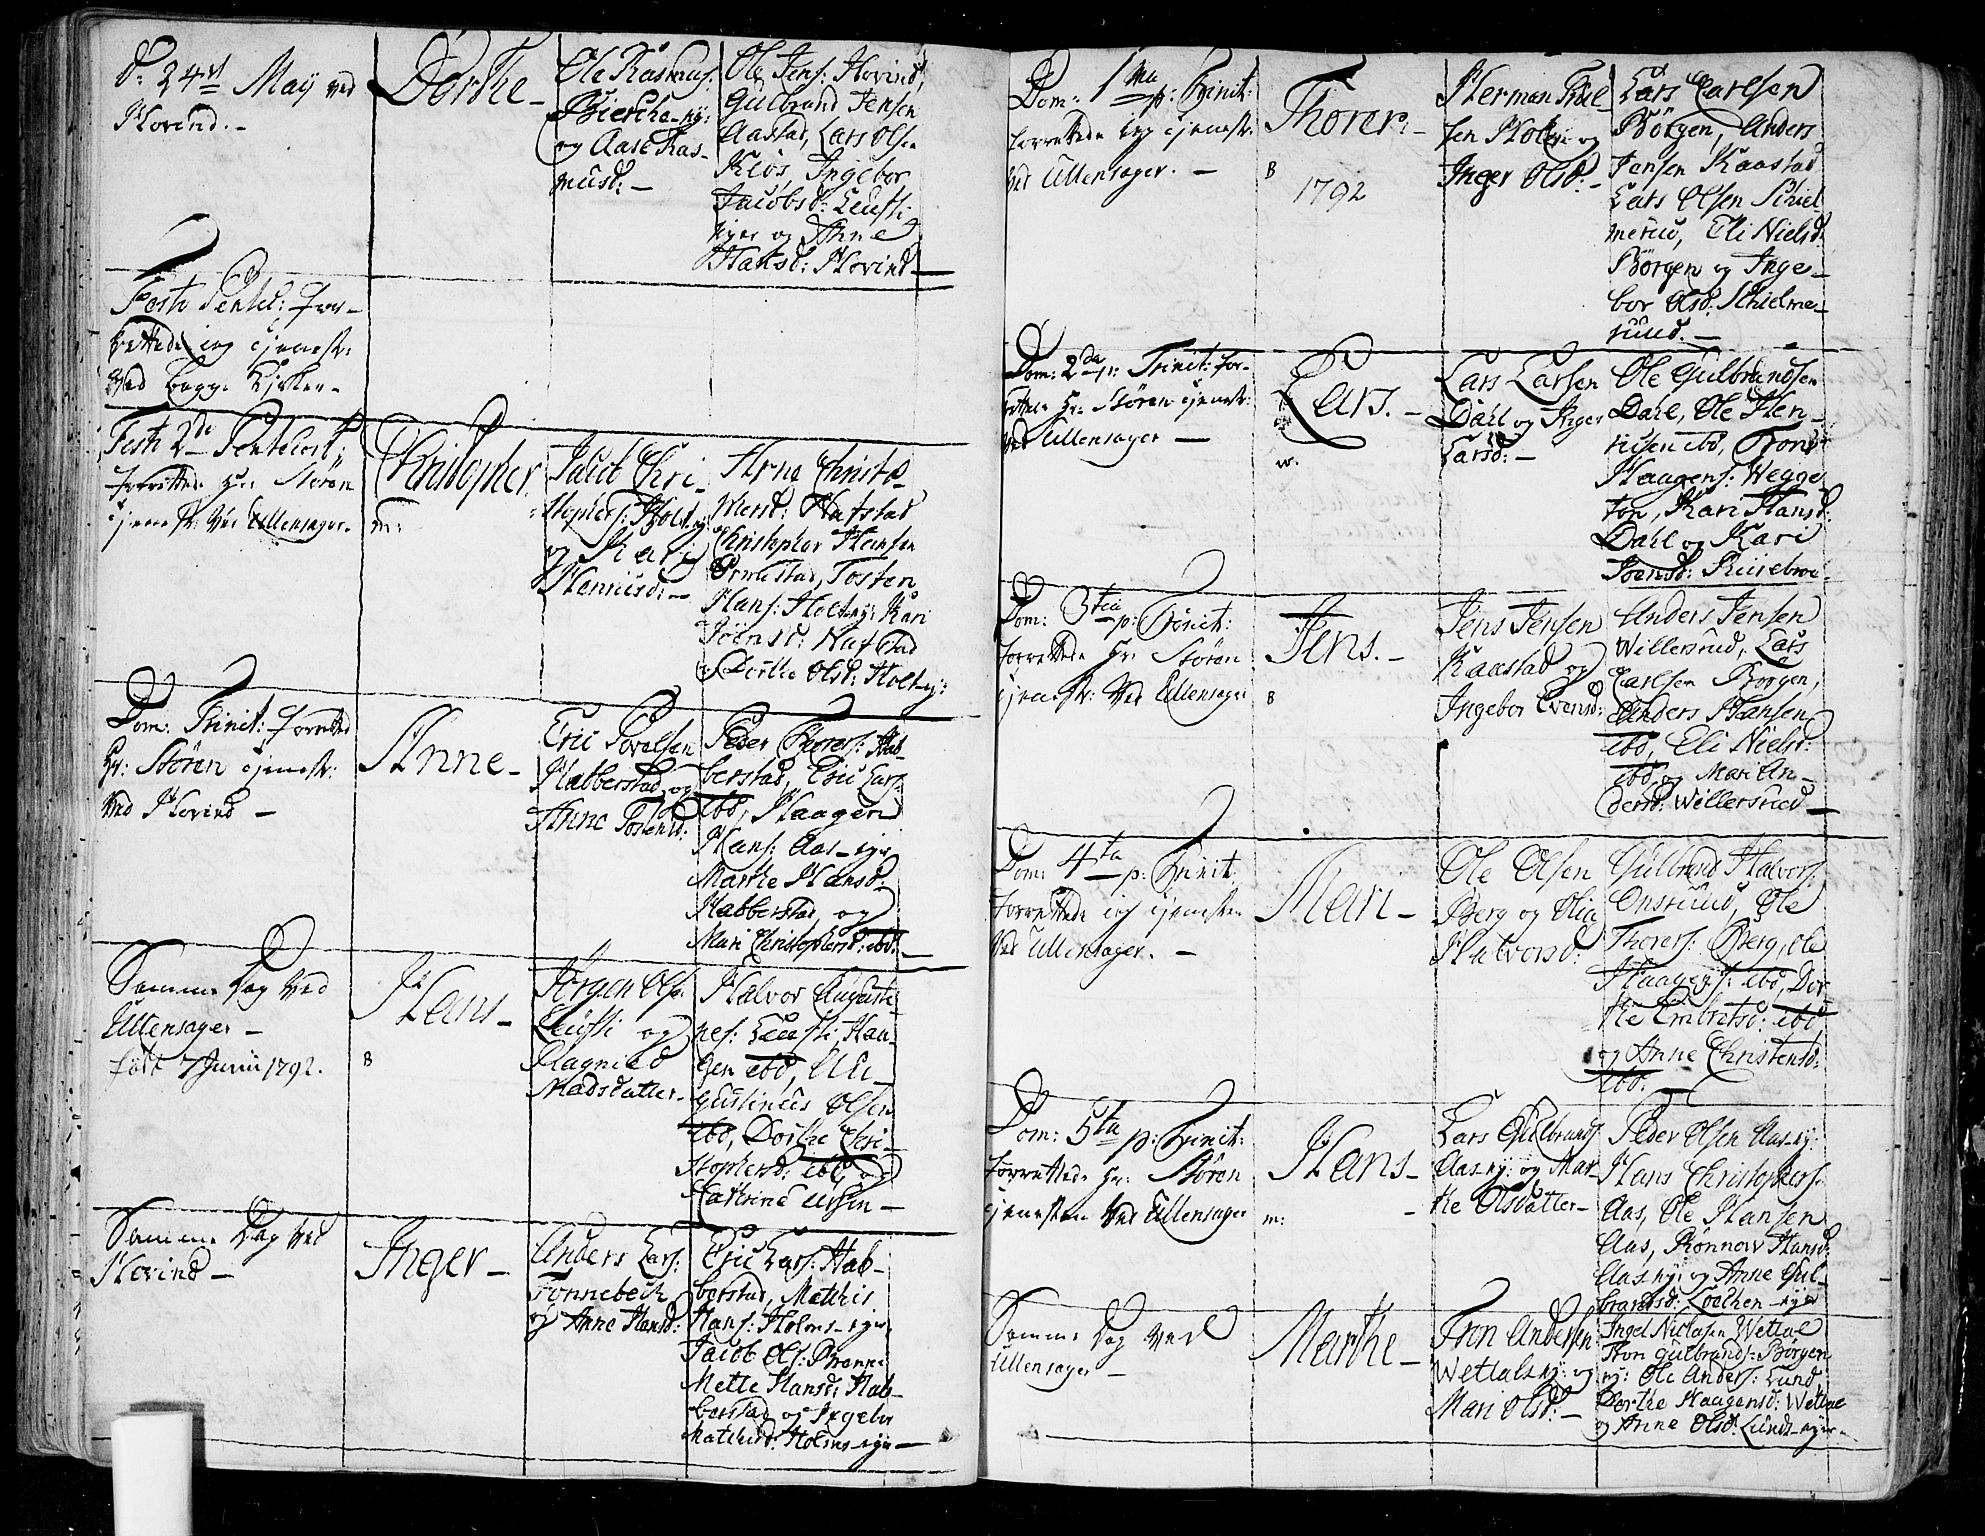 d: 24de Maÿ ved
Hovind. –
Dorthe –
Ole Rasmus:
Bierche-ey:
og Aase Ras-
musd: –
Ole Jens: Hovind,
Gulbrand Jensen
Aastad, Lars Olsen
Kios, Ingebor
Jacobsd:
og Anne
Hansd: Hovind –
Festo Pentec: for-
rettede jeg tjenest:
ved begge Kirker –
Festo 2de Pentecost:
forrettede Hr: Stören
tjenest: ved Ullensager.
Christopher
m:
Jacob Chri-
stophers: Holt-ey:
og Kari
Henricsd: –
Arne Christo-
Nafstad
Christopher Hansen
Ormestad, Tosten
Hans: Holt-ey: Kari
Joensd: Nafstad
Dorthe Olsd: Holt-ey:
Dom: Trinit: forrettede
Hr: Stören tjenest:
ved Hovind –
Anne –
Eric Povelsen
Habberstad, og
Anne Tostensd:
Peder Thorers: Hab-
berstad, Eric Lars:
ibd, Haagen
Hans: Aas-eyer
Marthe Hansd:
Habberstad, og
Mari Christophersd: ibd: –
Samme Dag ved
Ullensager –
födt 7 Junii 1792.
Hans –
B
Jörgen Ols:
og
Ragnild
Madsdatter –
Halvor Augusti-
nes: Haa-
gen ibd, Au-
gustinus Olsen
ibd, Dorthe Chri-
stophersd: ibd, og
Samme Dag ved
Hovind –
Inger –
Anders Lars:
Tonnebech
og Anne Hansd:
Eric Lars: Hab-
berstad, Matthis
Hans: Holms-eyer,
Jacob Ols:
Mette Hansd: Hab-
berstad og Ingebor
Matthisd: Holms-eyer –
Dom: 1ma p: Trinit:
forrettede jeg tjenest:
ved Ullensager. –
Thorer –
B
1792
Herman
sen Holm og
Inger Olsd: –
Lars Carlsen
Börgen, Anders
Jensen Kaastad
Lars Olsen Schiel-
merud, Eli Nielsd:
Börgen og Inge-
bor Olsd: Schielme-
ruud. –
Dom: 2da p: Trinit: for-
rettede Hr: Stören tjenest:
ved Ullensager –
Lars. –
Lars Larsen
Dahl og Inger
Larsd: –
Ole Gulbrandsen
Dahl, Ole Hen-
ricsen ibd, Trond
Haagens: Wegge-
Kari Hansd:
Dahl og Kari
Dom: 3tia p: Trinit:
forrettede Hr: Stören
tjenest: ved Ullensager
Jens. –
B
Jens Jensen
Kaastad og
Ingebor Evensd:
Anders Jensen
Willersrud, Lars
Carlsen Börgen,
Anders Hansen
ibd, Eli Nielsd:
ibd, og Mari An-
dersd: Willersrud –
Dom: 4ta p: Trinit:
forrettede jeg tjenesten
ved Ullensager. –
Mari –
Ole Olsen
Berg og Olia
Halvorsd:
Gulbrand Halvors:
Onsruud, Ole
Thorers: Berg, Ole
Haagens: ibd, Dor-
the Embretsd: ibd,
og Anne Christensd:
ibd: –
Dom: 5ta p: Trinit:
forrettede Hr: Stören
tjenesten ved Ullensager
Hans –
m:
Lars Gulbrands:
Aas-ey: og Mar-
the Olsdatter –
Peder Olsen Aas-ey:
Hans Christophers:
Aas, Ole Hansen
Aas, Rönnow Hansd:
Aas-ey: og Anne Gul-
brandsd: Loechen-eyer
Samme Dag ved
Ullensager –
Marthe –
Iver Andersen
Wettals-ey: og
Mari Olsd: –
Ingel Niclasen Wettal
Gulbrands: Börgen
ey: Ole Anders: Lund
Dorthe Haagensd: Wettal
og Anne Olsd: Lunds-eyer –